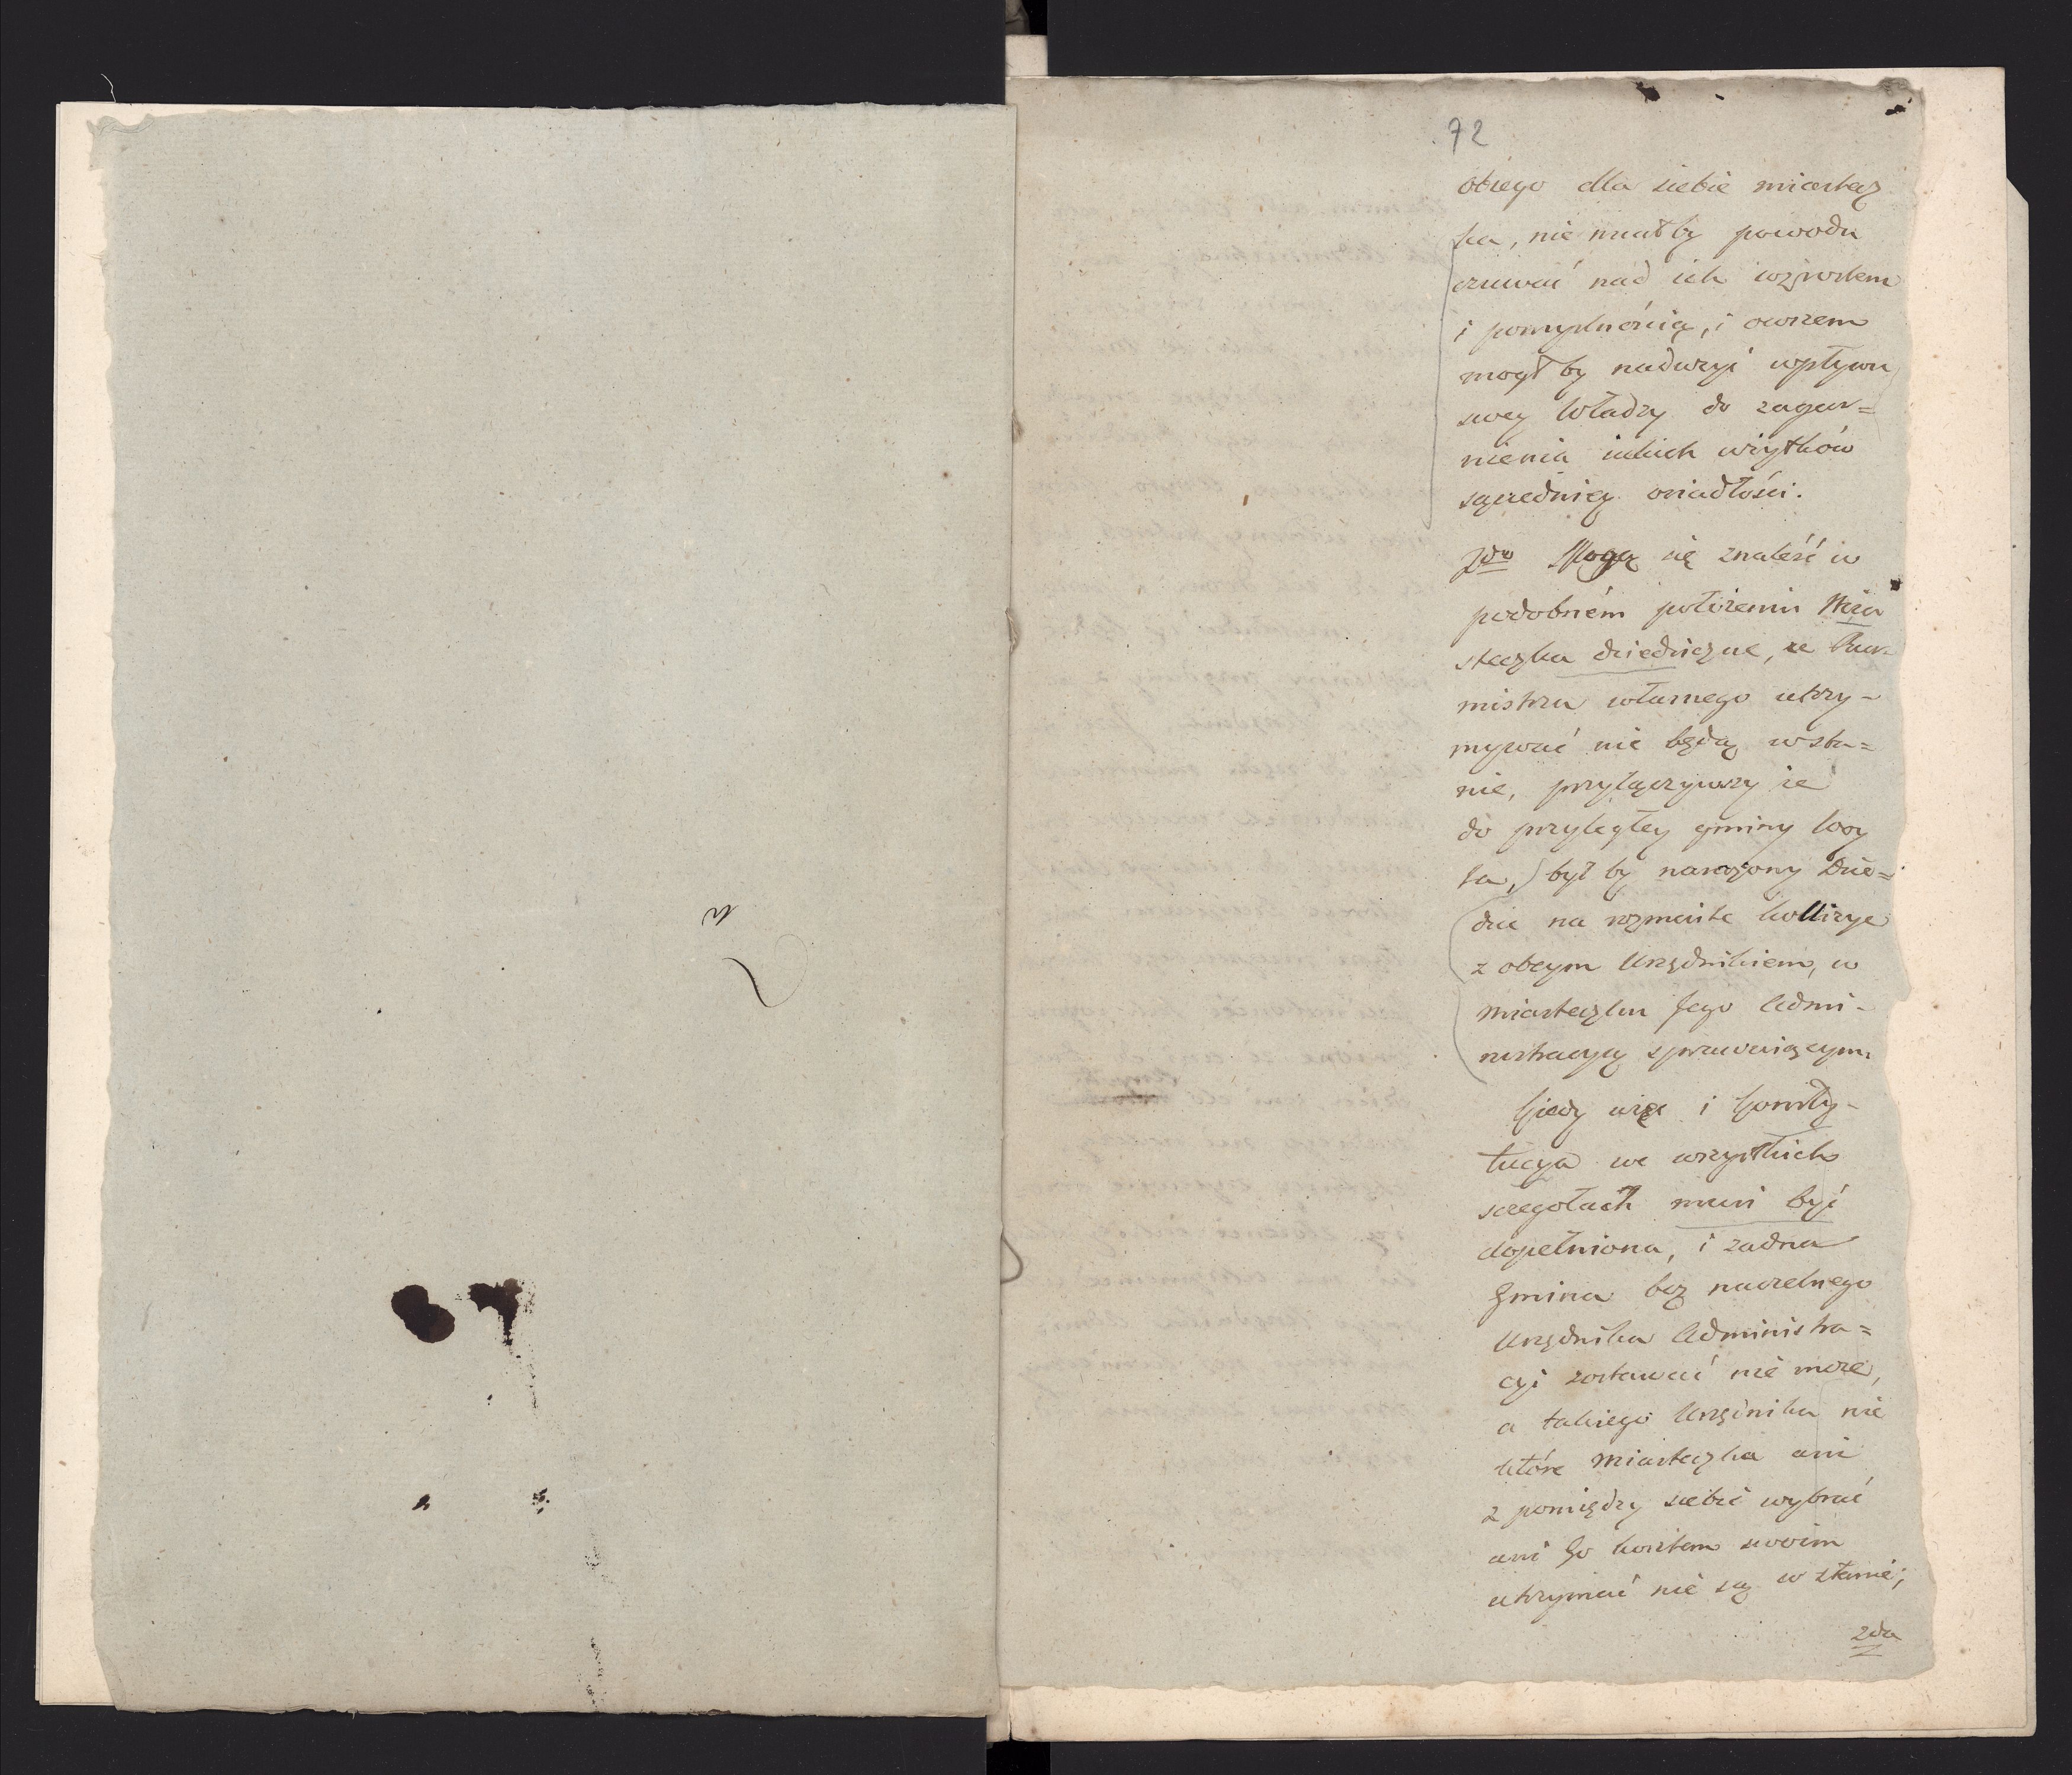 72
obcego dla siebie miastecz
ka, nie miał by powodu
czuwać nad ich wzrostem
i pomyślnością, i owszem
mogł by nadużyć wpływu
swey Władzy do zagar=
nienia iakich użytków
sąsiedniey osiadłości.
2do Mogą się znaleść w
podobném położeniu Mia
steczka dziedziczne, że Bur=
mistrza własnego utrzy-
mywać nie będą wsta=
nie, przyłączywszy ie
do przyległey gminy
był by narażony Dzie=
dzic na rozmaite kollizye
z obcym Urzędnikiem, w
miasteczku Jego Admi-
nistracyą sprawuiącym.
Gdy więc i Konsty-
tucya we wszystkich
szczegołach musi być
dopełniona, i żadna
Gmina bez naczelnego
Urzędnika Administra=
cyi zostawać nie może,
a takiego Urzędnika nie
które Miasteczka ani
z pomiędzy siebie wybrać
ani Go kosztem swoim
utrzymać nie są w stanie;